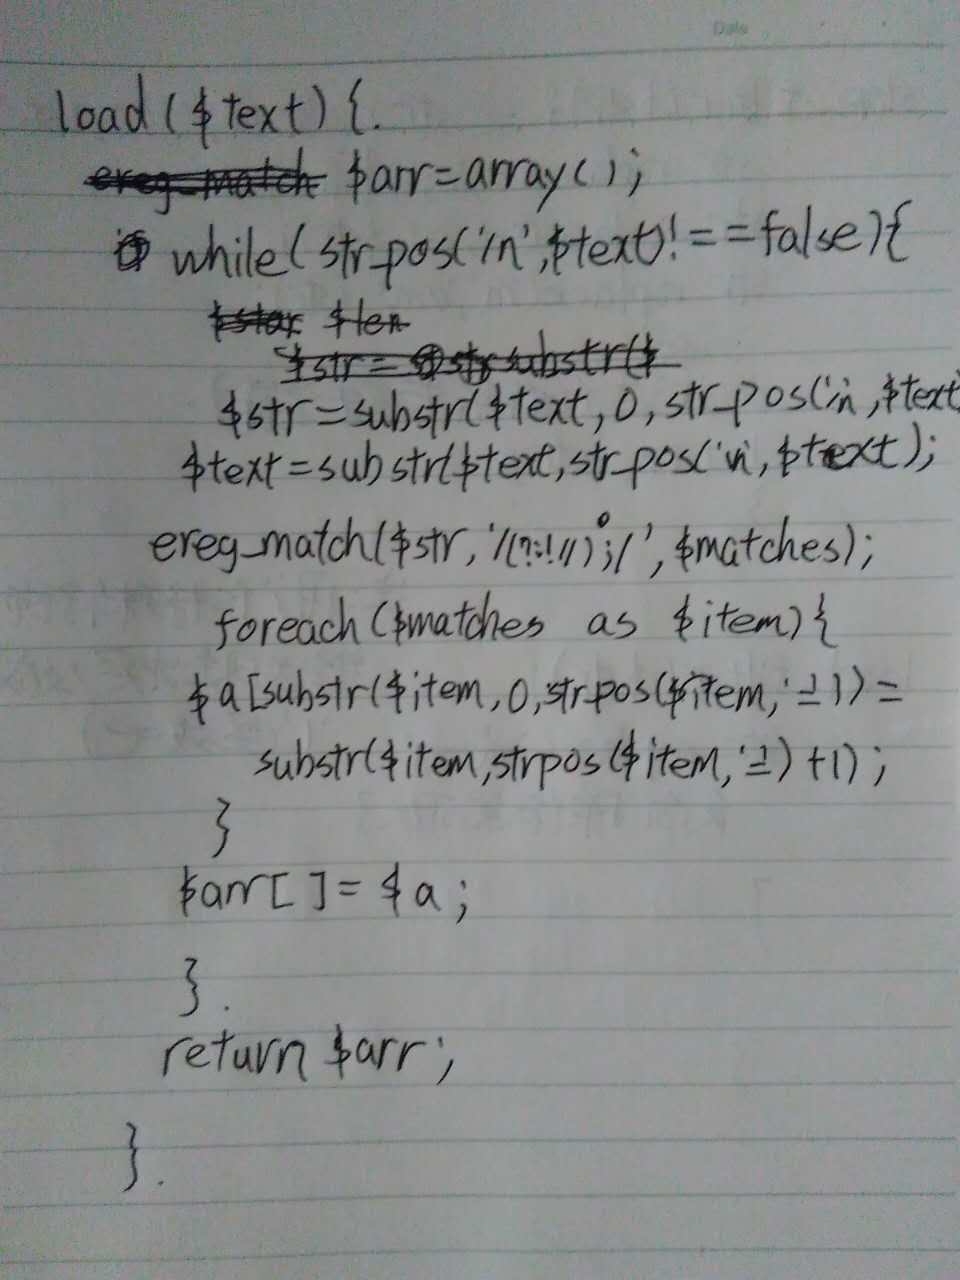 Date
load($text){.
ereg_match $arr=array();
while(str_pos('/n',$text)!==false){
$star $len
$str = substr($
$str=substr($text,0,str_pos('\n,$text
$text=substr($text,str_pos('\n',$text);
ereg_match($str,'/(?:!//);/',$matches);
foreach($matches as $item){
$a[substr($item,0,strpos($item,'=')1)=
substr($item,strpos($item,'=')+1);
}
$arr[]=$a;
}.
return $arr;
}.